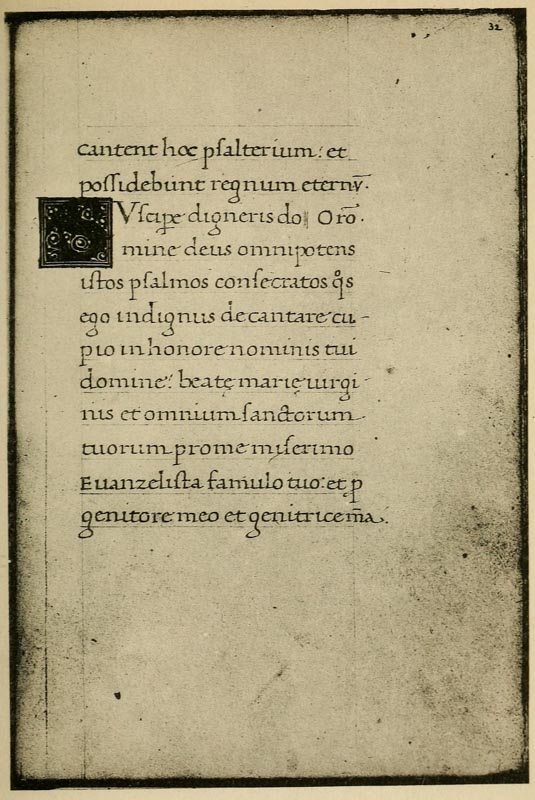 32
cantent hoc psalterium: et
possidebunt regnum eternv̄.
Uscipe digneris do Orō.
mine deus omnipotens
istos psalmos consecratos qͦs
ego indignus decantare cu-
pio in honore nominis tui
domine: beatę marię uirgi
nis et omnium sanctorum
tuorum pro me miserimo
Euanzelista famulo tuo: et ꝑ
genitore meo et genitrice m̄a.